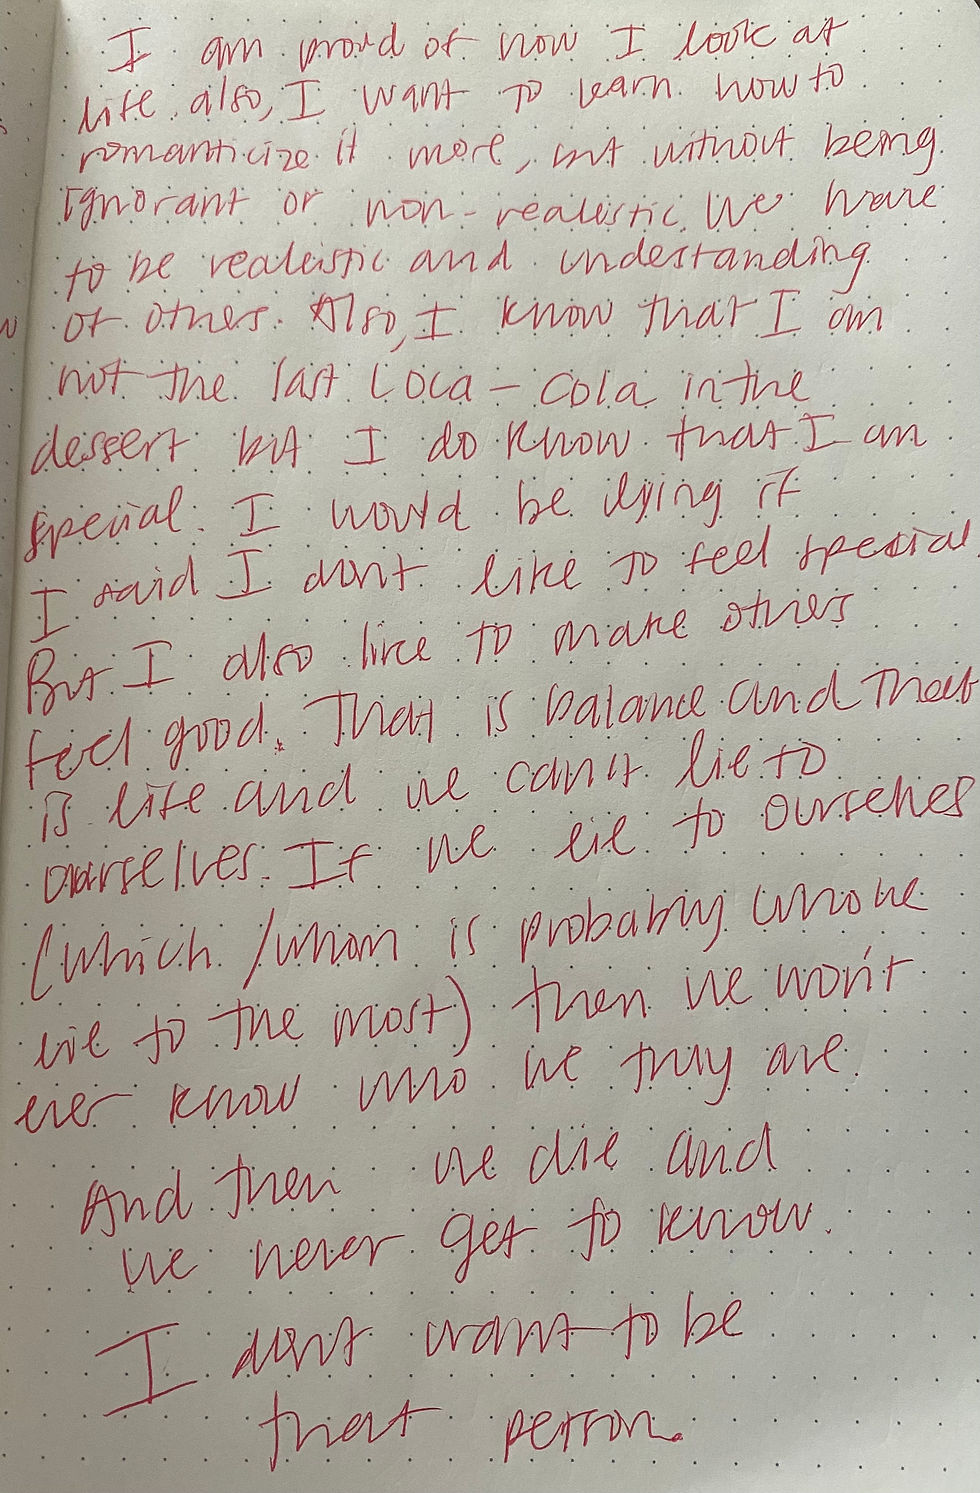 I am proud of how I look at
life, also, I want to learn how to
romanticize it more, but without being
ignorant or non-realistic. We have
to be realistic and understanding
of others. Also, I know that I am
not the last Coca-Cola in the
dessert but I do know that I am
special. I would be lying if
I said I don't like to feel special
But I also like to make others
feel good. That is balance and that
is life and we can't lie to
ourselves. If we lie to ourselves
(which/whom is probably who we
lie to the most) then we won't
ever know who we truly are.
And then we die and
we never get to know.
I don't want to be
that person.